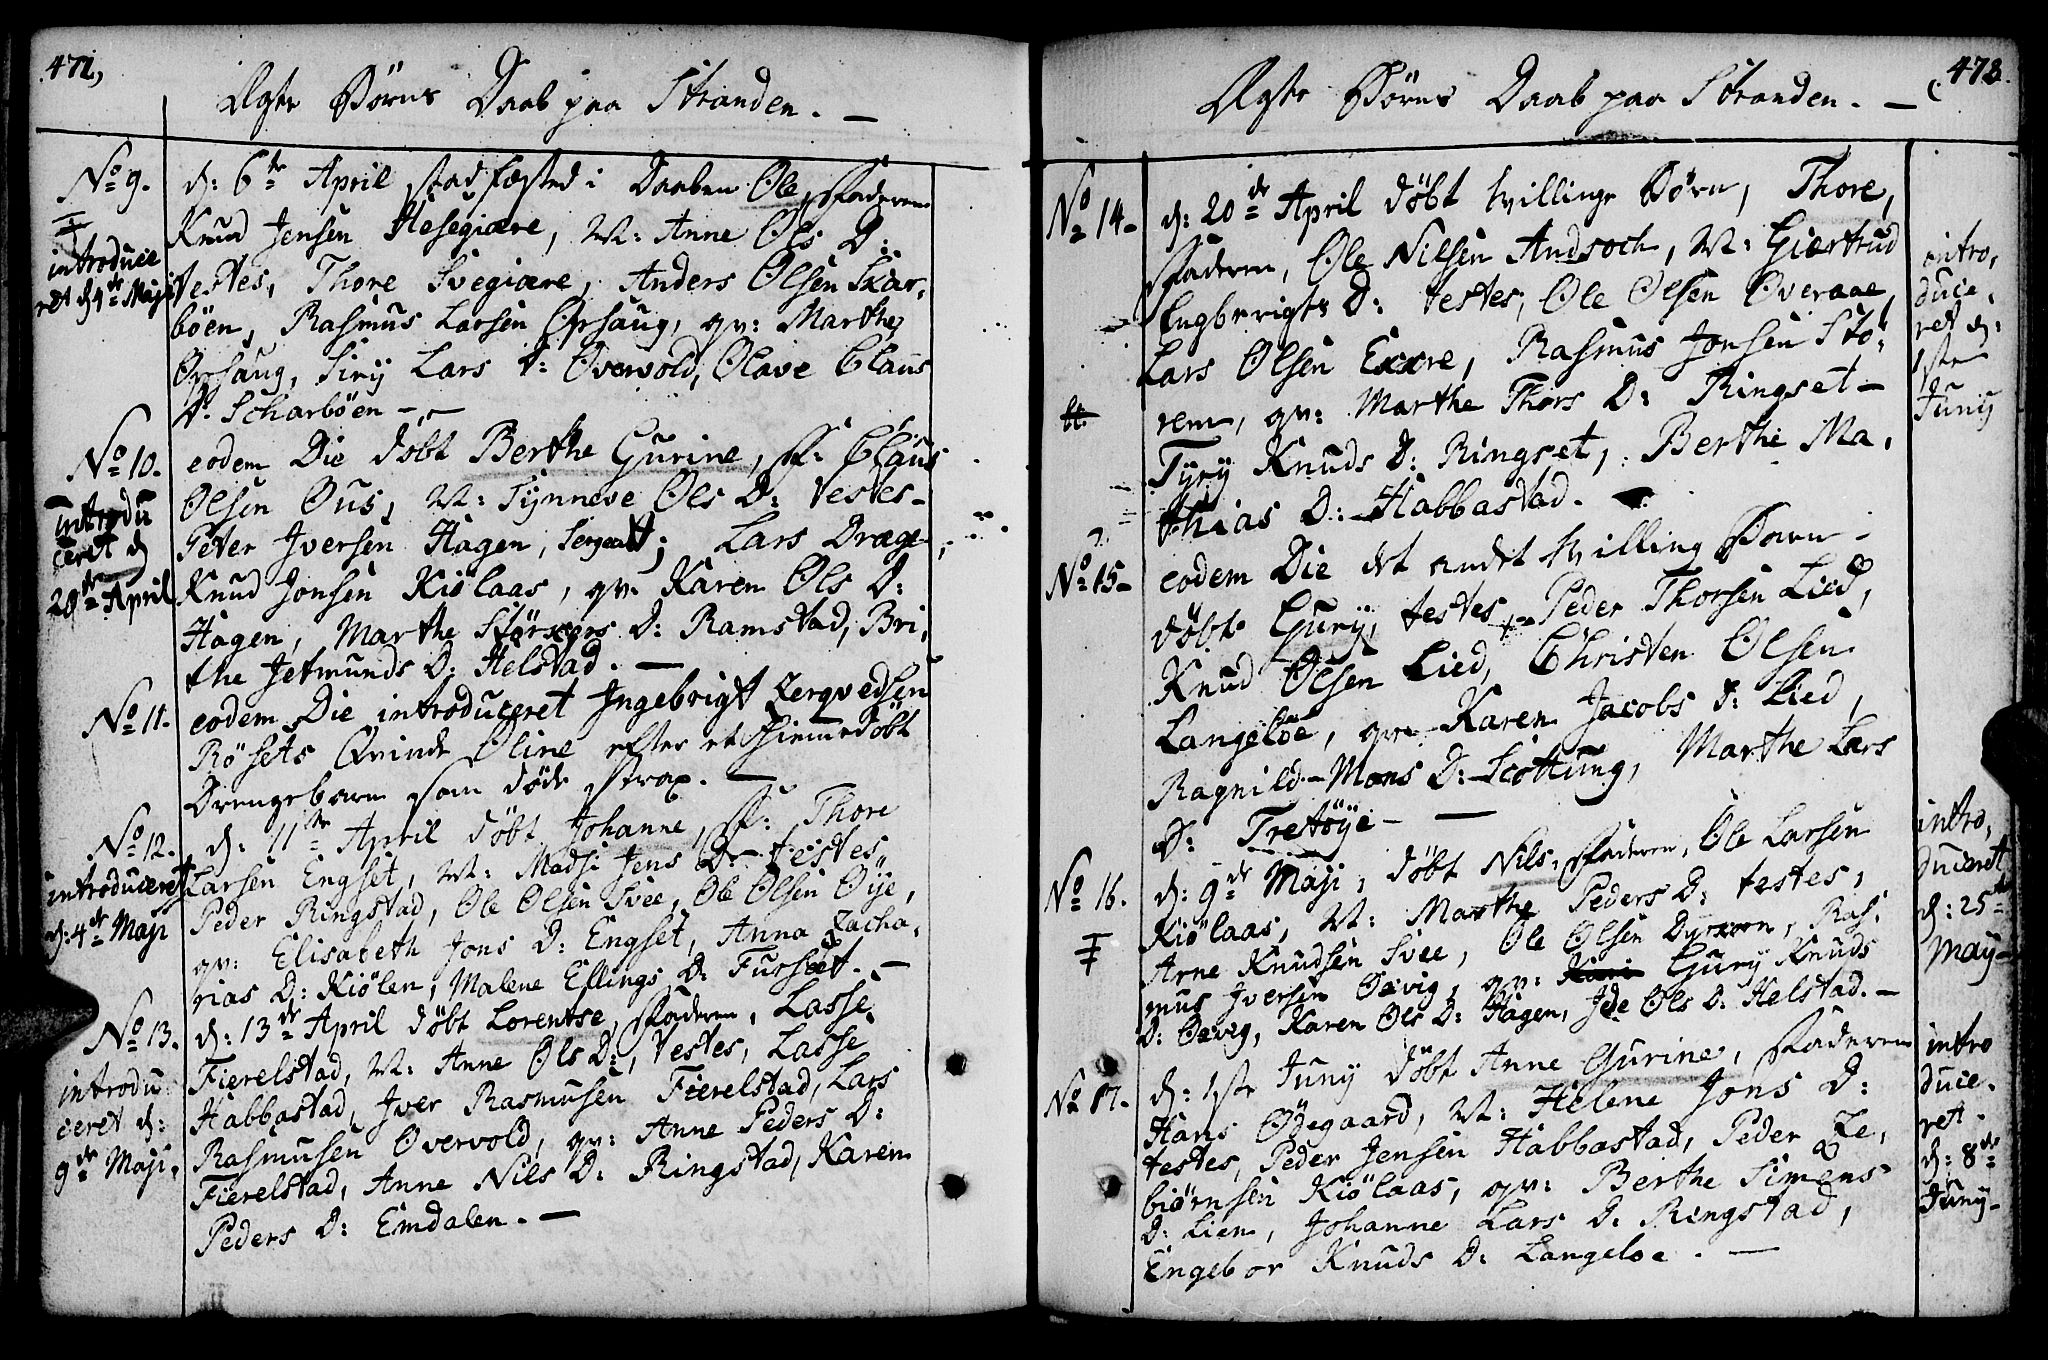 471,
Ægte Börns Daab paa Stranden. —
No 9.
d: 6te April stadfæsted i Daaben Ole, Faderen
Knud Jensen Hesegiære, M: Anne Ols D:
introduce
ret d 4de Maji
Testes, Thore Svegiære, Anders Olsen Skar,
böen, Rasmus Larsen Orsaug, qv: Marthe
Orsaug, Siry Lars D: Overvold, Olave Claus
D: Scharböen —
No 10.
eodem Die döbt Berthe Gurine, F: Claus
Olsen Ous, M: Synneve Ols D: Testes —
introdu
ceret d
20de April
Peter Iversen Hagen, Sergeant; Lars Drage,
Knud Jonsen Kiölaas, qv: Karen Ols D:
Hagen, Marthe Störkers D: Ramstad, Bri,
the Jetmunds D: Helstad. —
No 11.
eodem Die introduceret Ingebrigt Zergvedsen
Rösets Qvinde Oline efter et hiemmedöbt
Drengebarn som döde strax. —
No 12.
d: 11te April döbt Johanne, F: Thore
introduceret
d: 4de Maji
Larsen Engset, M: Madsi Jens D: testes
Peder Ringstad, Ole Olsen Svee, Ole Olsen Öÿe,
qv: Elisabeth Jons D: Engset, Anna Zacha,
rias D: Kiölen, Malene Ellings D: Furset. —
No 13.
d: 13de April döbt Lorentse, Faderen, Lasse
introdu
ceret d:
9de Maji,
Fierelstad, M: Anne Ols D:, Testes, Lasse
Habbastad, Iver Rasmusen Fierelstad, Lars
Rasmusen Overvold, qv: Anne Peders D:
Fierelstad, Anne Nils D: Ringstad, Karen
Peders D: Emdalen. —
472.
Ægte Börns Daab paa Stranden. —
No 14.
d: 20de April döbt tvillinge Börn, Thore,
Faderen, Ole Nilsen Andsoch, M: Giertrud
Engbrigts D: testes, Ole Olsen Overaae,
Lars Olsen Exre, Rasmus Jonsen Sto,
rem, qv: Marthe Thors D: Ringset —
Tyry Knuds D: Ringset, Berthe Ma,
thias D: Habbastad.
intro,
duce,
ret d:
1ste
Juny
No 15.
eodem Die det andet tvilling Barn —
döbt Gury, testes, Peder Thorsen Lied,
Knud Olsen Lied, Christen Olsen
Langeloe, qv: Karen Jacobs D: Lied,
Ragnild Mons D: Scottung, Marthe Lars
D: Tretöÿe — —
No 16.
d: 9de Maji, döbt Nils, Faderen, Ole Larsen
Kiölaas, M: Marthe Peders D: testes,
Arne Knudsen Svee, Ole Olsen Dyrkorn, Ras,
mus Iversen Oævig, qv: Gury Knuds
D: Oævig, Karen Ols D: Hagen, Ide Ols D: Helstad. —
intro,
duceret
d: 25de
May —
No 17.
d: 1ste Juny döbt Anne Gurine, Faderen
Hans Ödegaard, M: Helene Jons D:
testes, Peder Jensen Habbastad, Peder Ze,
biörnsen Kiölaas, qv: Berthe Simens
D: Lien, Johanne Lars D: Ringstad,
Engebor Knuds D: Langeloe. —
intro
duce,
ret
d: 8de
Juny —